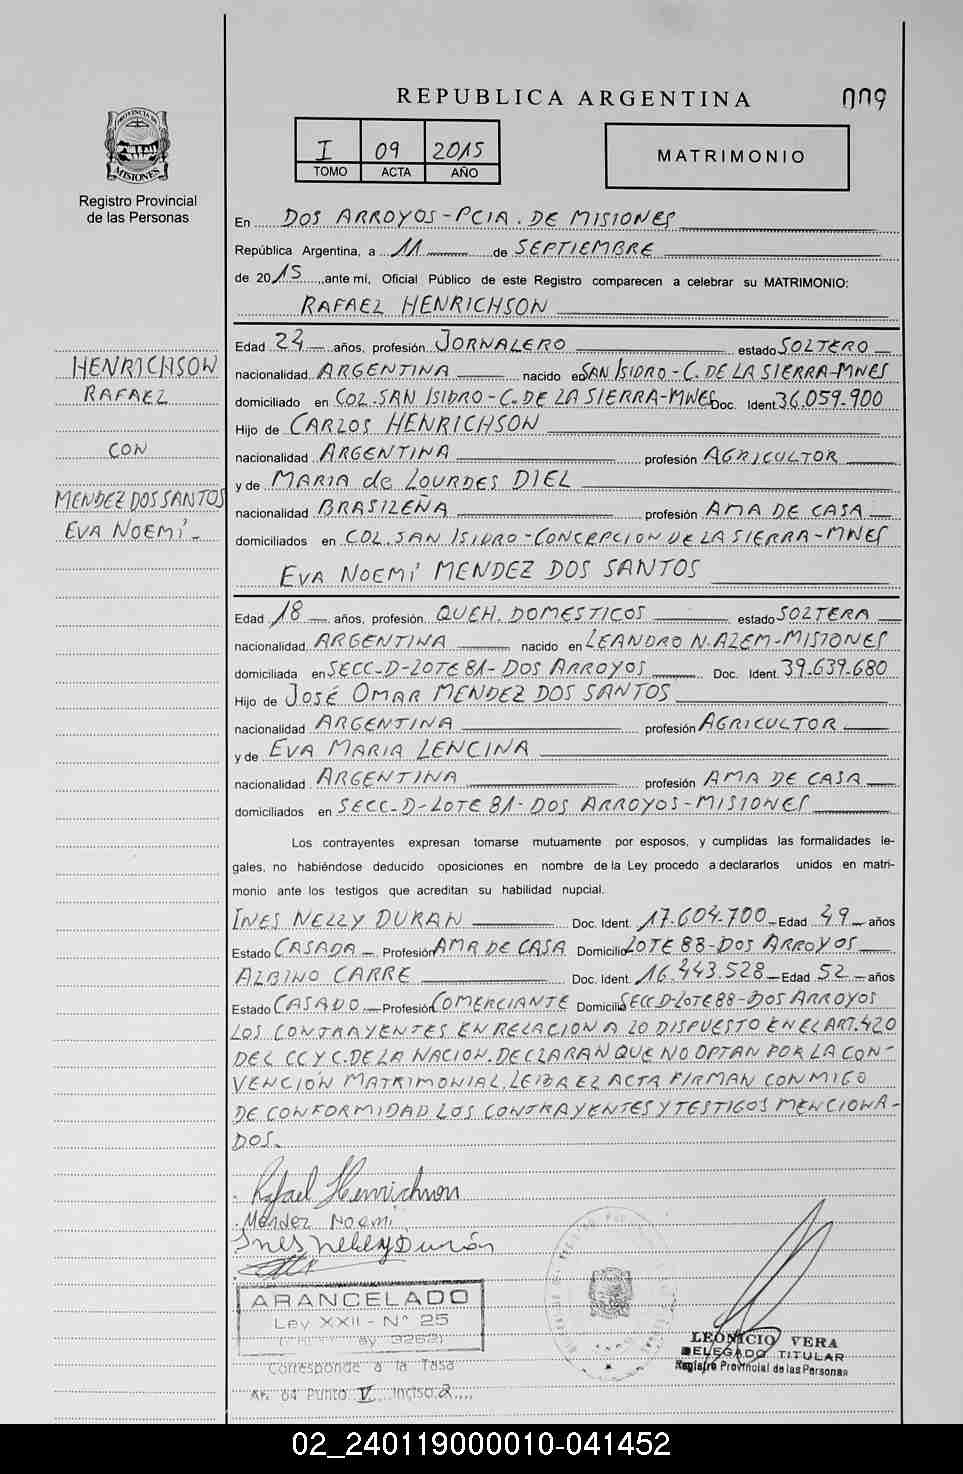 REPUBLICA ARGENTINA
009
PROVINCIA DE
MISIONES
Registro Provincial
de las Personas
I 09 2015
TOMO ACTA AÑO
MATRIMONIO
En DOS ARROYOS-PCIA. DE MISIONES
República Argentina, a 11 de SEPTIEMBRE
de 2015, ante mí, Oficial Público de este Registro comparecen a celebrar su MATRIMONIO:
RAFAEL HENRICHSON
HENRICHSON
RAFAEL
CON
MENDEZ DOS SANTOS
EVA NOEMÍ
Edad 23 años, profesión JORNALERO estado SOLTERO
nacionalidad ARGENTINA nacido en SAN ISIDRO-C. DE LA SIERRA-MNES
domiciliado en COL. SAN ISIDRO-C. DE LA SIERRA-MNES Doc. Ident. 36.059.900
Hijo de CARLOS HENRICHSON
nacionalidad ARGENTINA profesión AGRICULTOR
y de MARIA de LOURDES DIEL
nacionalidad BRASILEÑA profesión AMA DE CASA
domiciliados en COL. SAN ISIDRO-CONCEPCION DE LA SIERRA-MNES
EVA NOEMÍ MENDEZ DOS SANTOS
Edad 18 años, profesión QUEH. DOMESTICOS estado SOLTERA
nacionalidad ARGENTINA nacido en LEANDRO N. ALEM-MISIONES
domiciliada en SECC-D-LOTE 81-DOS ARROYOS Doc. Ident. 39.639.680
Hijo de JOSÉ OMAR MENDEZ DOS SANTOS
nacionalidad ARGENTINA profesión AGRICULTOR
y de EVA MARIA LENCINA
nacionalidad ARGENTINA profesión AMA DE CASA
domiciliados en SECC-D-LOTE 81-DOS ARROYOS-MISIONES
Los contrayentes expresan tomarse mutuamente por esposos, y cumplidas las formalidades le-
gales, no habiéndose deducido oposiciones en nombre de la Ley procedo a declararlos unidos en matri-
monio ante los testigos que acreditan su habilidad nupcial.
INES NELLY DURAN Doc. Ident. 17.604.700 Edad 49 años
Estado CASADA Profesión AMA DE CASA Domicilio LOTE 88-DOS ARROYOS
ALBINO CARRE Doc. Ident. 16.443.528 Edad 52 años
Estado CASADO Profesión COMERCIANTE Domicilio SECC D-LOTE 88-DOS ARROYOS
LOS CONTRAYENTES EN RELACION A LO DISPUESTO EN EL ART. 420
DEL CC Y C. DE LA NACION. DECLARAN QUE NO OPTAN POR LA CON-
VENCION MATRIMONIAL. LEIDA EL ACTA FIRMAN CONMIGO
DE CONFORMIDAD LOS CONTRAYENTES Y TESTIGOS MENCIONA-
DOS.
Rafael Henrichson
Méndez Noemi
Ines Nelly Durán
ARANCELADO
Ley XXII - N° 25
Corresponde a la Tasa
Ar. 04 Punto V Inciso 2
LEONICIO VERA
DELEGADO TITULAR
Registro Provincial de las Personas
02_240119000010-041452